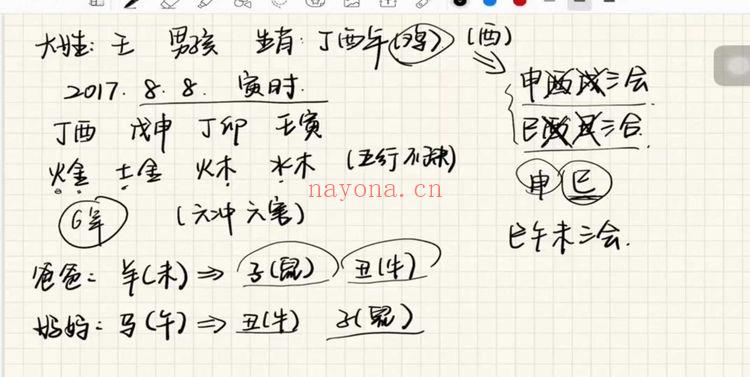 大姓: 王 男孩 生肖: 丁酉年 (鸡) (酉)
2017. 8. 8. 寅时.
丁酉 戊申 丁卯 壬寅
火金 土金 火木 水木 (五行不缺)
6笔 (六冲 六害)
爸爸: 羊(未) ⇒ 子(鼠) 丑(牛)
妈妈: 马(午) ⇒ 丑(牛) 子(鼠)
申酉戌三会
巳酉丑三合
申 巳
巳午未三会.
nayona.cn